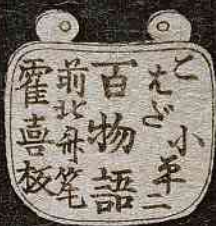 こはだ小平二
百物語
前北斎筆
霍喜板